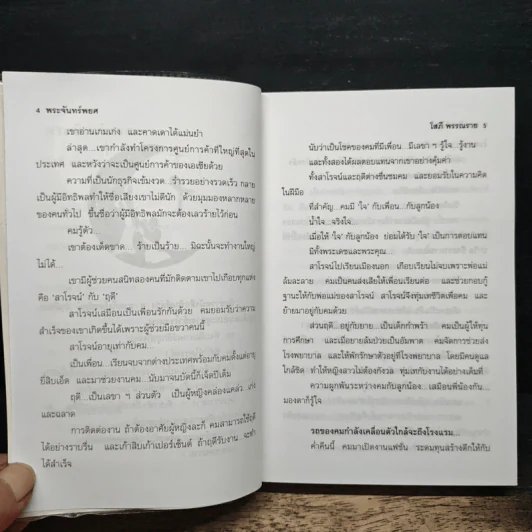 4 พระจันทร์พยศ
เขาอ่านเกมเก่ง และคาดเดาได้แม่นยำ
ล่าสุด...เขากำลังทำโครงการศูนย์การค้าที่ใหญ่ที่สุดใน
ประเทศ และหวังว่าจะเป็นศูนย์การค้าของเอเชียด้วย
ความที่เป็นนักธุรกิจเข้มงวด...ร่ำรวยอย่างรวดเร็ว กลาย
เป็นผู้มีอิทธิพลทำให้ชื่อเสียงเขาไม่ดีนัก ด้วยมุมมองหลากหลาย
ของคนทั่วไป ขึ้นชื่อว่าผู้มีอิทธิพลมักจะต้องเลวร้ายไว้ก่อน
คมรู้ตัว...
เขาต้องเด็ดขาด...ร้ายเป็นร้าย...มิฉะนั้นจะทำงานใหญ่
ไม่ได้...
เขามีผู้ช่วยคนสนิทสองคนที่มักติดตามเขาไปเกือบทุกแห่ง
คือ 'สาโรจน์' กับ 'ฤดี'
สาโรจน์เสมือนเป็นเพื่อนรักกันด้วย คมยอมรับว่าความ
สำเร็จของเขาเกิดขึ้นได้เพราะผู้ช่วยมือขวาคนนี้
สาโรจน์อายุเท่ากับคม
เป็นเพื่อน...เรียนจบจากต่างประเทศพร้อมกับคมตั้งแต่อายุ
ยี่สิบเอ็ด และมาช่วยงานคม นับมาจนบัดนี้ก็เจ็ดปีเต็ม
ฤดี...เป็นเลขา ฯ ส่วนตัว เป็นผู้หญิงคล่องแคล่ว เก่ง
และฉลาด
การติดต่องาน ถ้าต้องอาศัยผู้หญิงละก็ คมสามารถใช้ฤดี
ได้อย่างราบรื่น และเก้าสิบเก้าเปอร์เซ็นต์ ถ้าฤดีรับงาน จะทำ
ได้สำเร็จ
โสภี พรรณราย 5
นับว่าเป็นโชคของคมที่มีเพื่อน...มีเลขา ฯ รู้ใจ...รู้งาน
และทั้งสองได้ผลตอบแทนจากเขาอย่างคุ้มค่า
ทั้งสาโรจน์และฤดีต่างชื่นชมคม และยอมรับในความคิด
ในฝีมือ
ที่สำคัญ...คมมี 'ใจ' กับเพื่อน...กับลูกน้อง
น้ำใจ...จริงใจ
เมื่อให้ 'ใจ' กับลูกน้อง ย่อมได้รับ 'ใจ' เป็นการตอบแทน
มีทั้งพระเดชและพระคุณ
สาโรจน์ไปเรียนเมืองนอก เกือบเรียนไม่จบเพราะพ่อแม่
ล้มละลาย คมเป็นคนส่งเสียให้เพื่อนเรียนต่อ และช่วยกอบกู้
ฐานะให้กับพ่อแม่ของสาโรจน์ สาโรจน์จึงทุ่มเทชีวิตเพื่อคม และ
ย้ายมาอยู่กับคมด้วย
ส่วนฤดี...อยู่กับยาย...เป็นเด็กกำพร้า คมเป็นผู้ให้ทุน
การศึกษา และเมื่อยายล้มป่วยเป็นอัมพาต คมจัดการช่วยส่ง
โรงพยาบาล และให้พักรักษาตัวอยู่ที่โรงพยาบาล โดยมีคนดูแล
ใกล้ชิด ทำให้หญิงสาวไม่ต้องกังวล ทุ่มเทกับงานได้อย่างเต็มที่
ความผูกพันระหว่างคมกับลูกน้อง...เสมือนพี่น้องกัน...
มองตาก็รู้ใจ
รถของคมกำลังเคลื่อนตัวใกล้จะถึงโรงแรม...
ค่ำคืนนี้ คมมาเปิดงานแฟชั่น ระดมทุนสร้างตึกให้กับ